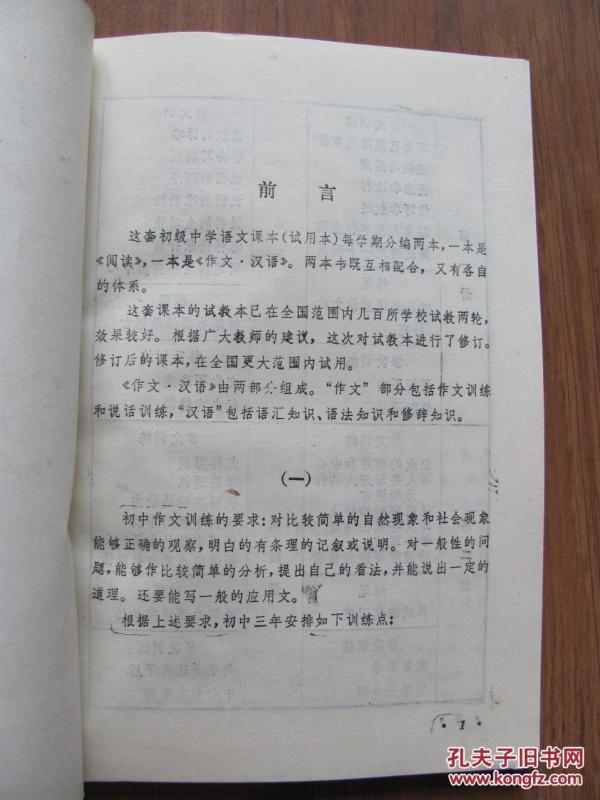 前言
这套初级中学语文课本(试用本)每学期分编两本,一本是
《阅读》,一本是《作文·汉语》。两本书既互相配合,又有各自
的体系。
这套课本的试教本已在全国范围内几百所学校试教两轮,
效果较好。根据广大教师的建议,这次对试教本进行了修订。
修订后的课本,在全国更大范围内试用。
《作文·汉语》由两部分组成。“作文”部分包括作文训练
和说话训练,“汉语”包括语汇知识、语法知识和修辞知识。
(一)
初中作文训练的要求:对比较简单的自然现象和社会现象
能够正确的观察,明白的有条理的记叙或说明。对一般性的问
题,能够作比较简单的分析,提出自己的看法,并能说出一定的
道理。还要能写一般的应用文。
根据上述要求,初中三年安排如下训练点:
·1·
孔夫子旧书网
www.kongfz.com